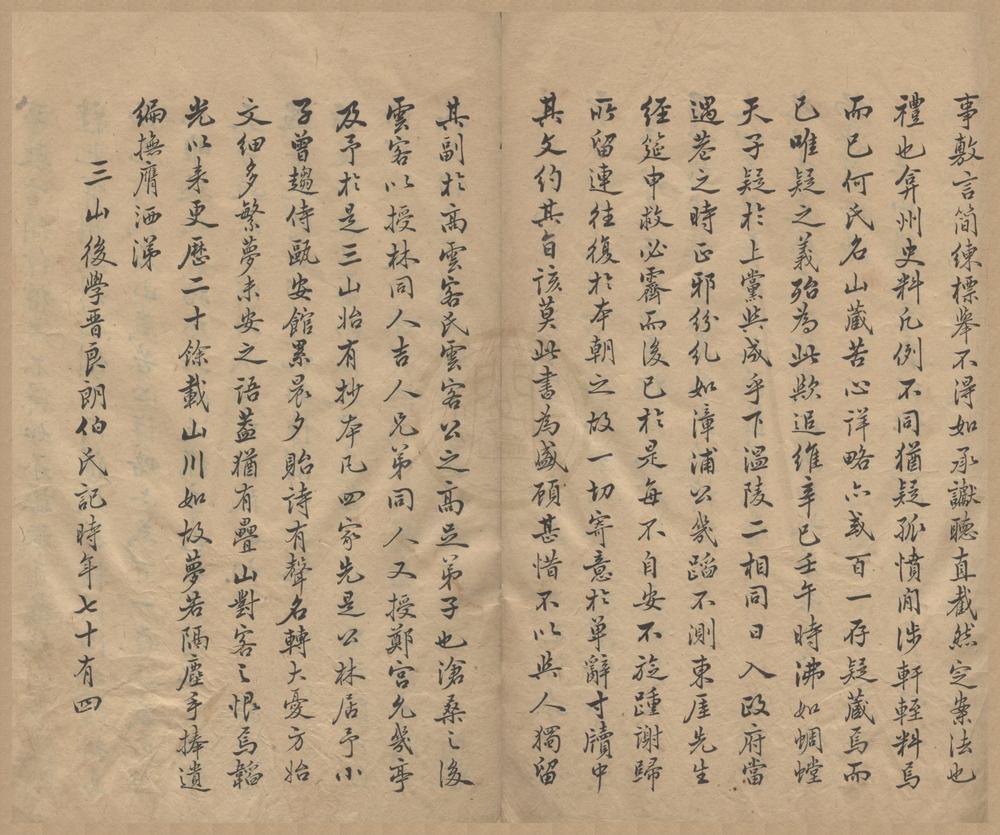 事敷言简練標舉不得如承讞聽直截然定案法也
禮也弇州史料凡例不同猶疑孤憤間涉軒輊料焉
而已何氏名山藏苦心詳略亦或百一存疑藏焉而
已唯疑之義殆為此歟追維辛巳壬午時沸如蜩螗
天子疑於上黨與成乎下溫陵二相同日入政府當
遇巷之時正邪紛糺如漳浦公幾蹈不測東厓先生
經筵申救必霽而後已於是每不自安不旋踵謝歸
所留連往復於本朝之故一切寄意於单辭寸牘中
其文約其旨該莫此書為盛顧甚惜不以與人獨留
其副於高雲客氏雲客公之高足弟子也滄桑之後
雲客以授林同人吉人兄弟同人又授鄭宮允幾亭
及予於是三山始有抄本凡四家先是公林居予小
子曾趨侍甌安館累晨夕貽詩有聲名轉大憂方始
文細多繁夢未安之語蓋猶有疊山對客之恨焉韜
光以来更歷二十餘載山川如故夢若隔塵手捧遺
編撫膺洒涕
三山後學晋良朗伯氏記時年七十有四